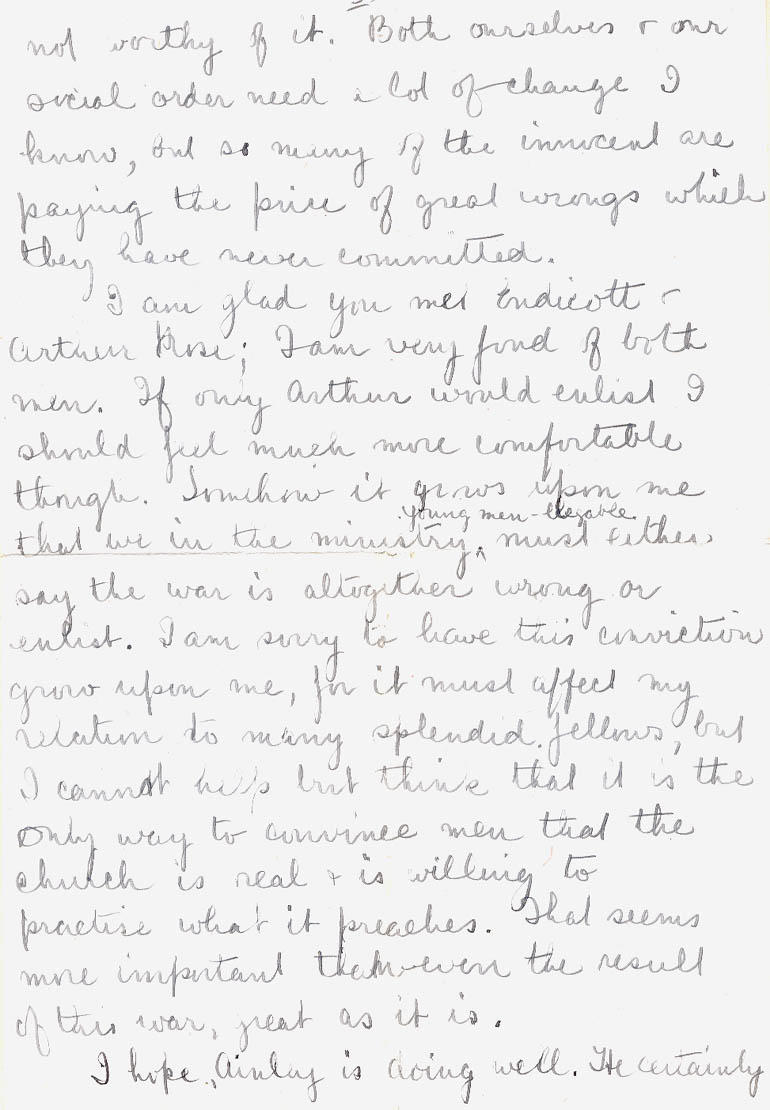 not worthy of it. Both ourselves & our
social order need a lot of change I
know, but so many of the innocent are
paying the price of great wrongs which
they have never committed.
I am glad you met Endicott &
Arthur Rose; I am very fond of both
men. If only Arthur would enlist I
should feel much more comfortable
though. Somehow it grows upon me
young men - elegable
that we in the ministry, must either
say the war is altogether wrong or
enlist. I am sorry to have this conviction
grow upon me, for it must affect my
relation to many splendid fellows, but
I cannot help but think that it is the
only way to convince men that the
church is real & is willing to
practise what it preaches. That seems
more important than even the result
of this war, great as it is.
I hope Ainlay is doing well. He certainly